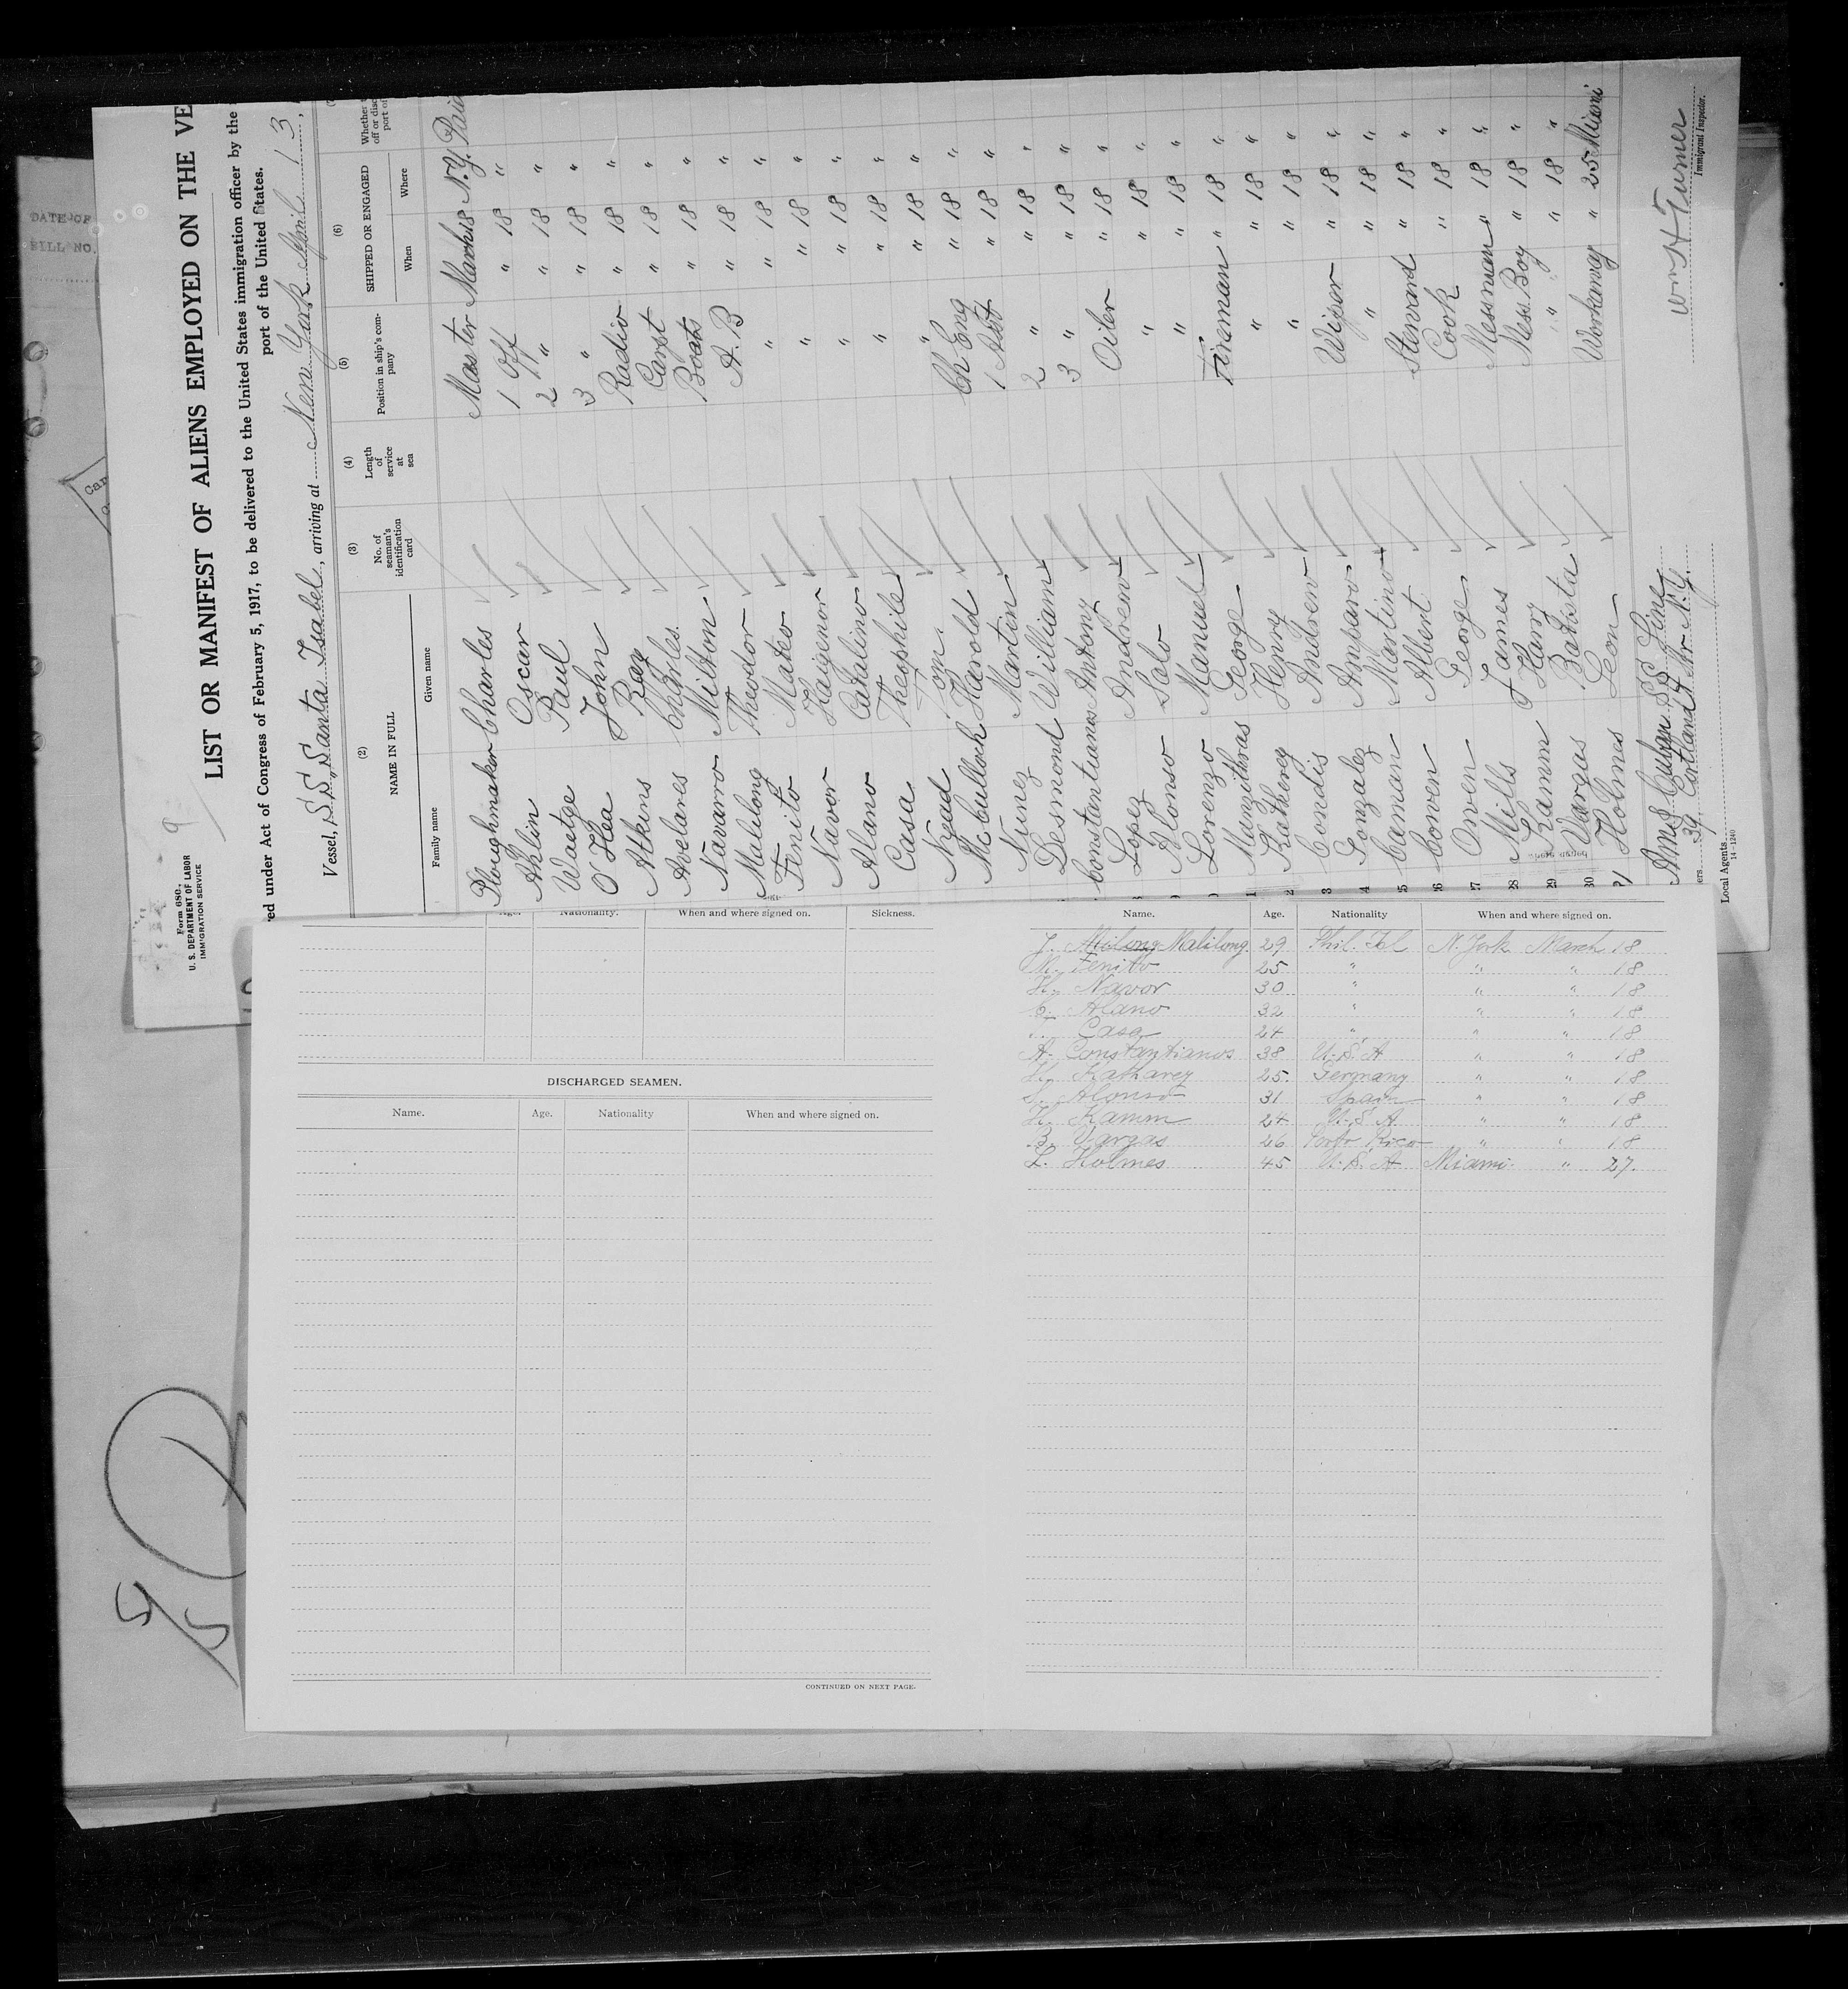 DATE OF
BILL NO.
Form 680.
U. S. DEPARTMENT OF LABOR
IMMIGRATION SERVICE
LIST OR MANIFEST OF ALIENS EMPLOYED ON THE VE
red under Act of Congress of February 5, 1917, to be delivered to the United States immigration officer by the
port of the United States.
Vessel, SS Santa Isabel, arriving at New York April 13,
(2) (3) (4) (5) (6)
NAME IN FULL No. of seaman's identification card Length of service at sea Position in ship's company SHIPPED OR ENGAGED
Family name Given name When Where
Ploughmaker Charles Master March 18 N.Y. Paid
Ahlin Oscar 1 Off " 18 "
Waatge Paul 2 " " 18 "
O'Hea John 3 " " 18 "
Atkins Ray Radio " 18 "
Avelares Charles Carpt " 18 "
Navarro Milton Boats " 18 "
Malilong Theodor A.B " 18 "
Fenito Mateo " " 18 "
Navor Haigenor " " 18 "
Alano Catalino " " 18 "
Casa Theophile " " 18 "
Nead Tom " " 18 "
McCulloch Harold Ch Eng " 18 "
Nunez Martin 1 Asst " 18 "
Desmond William 2 " " 18 "
Constantianos Antony 3 " " 18 "
Lopez Andrew Oiler " 18 "
Alonso Solo " " 18 "
Lorenzo Manuel " " 18 "
Manzithras George Fireman " 18 "
Katherey Henry " " 18 "
Condis Andrew " " 18 "
Gonzalez Amparo Wiper " 18 "
Caman Martino " " 18 "
Cowen Albert Steward " 18 "
Owen George Cook " 18 "
Mills James Messman " 18 "
Kamm Harry Mess Boy " 18 "
Vargas Batista " " 18 "
Holmes Leon Workaway " 25 Miami
Ams Cuban SS Line
39 Cortland Str N.Y.
Local Agents
14-1240
Turner
Immigrant Inspector.
Age. Nationality. When and where signed on. Sickness.
DISCHARGED SEAMEN.
Name. Age. Nationality When and where signed on.
CONTINUED ON NEXT PAGE.
Name. Age. Nationality When and where signed on.
T. Milong Malilong 29 Phil. Isl N. York March 18
M. Fenito 25 " " " 18
H. Navor 30 " " " 18
C. Alano 32 " " " 18
T. Casa 24 " " " 18
A. Constantianos 38 U.S.A " " 18
H. Katharey 25 Germany " " 18
S. Alonso 31 Spain " " 18
H. Kamm 24 U.S.A " " 18
B. Vargas 26 Porto Rico " " 18
L. Holmes 45 U.S.A Miami " 27.